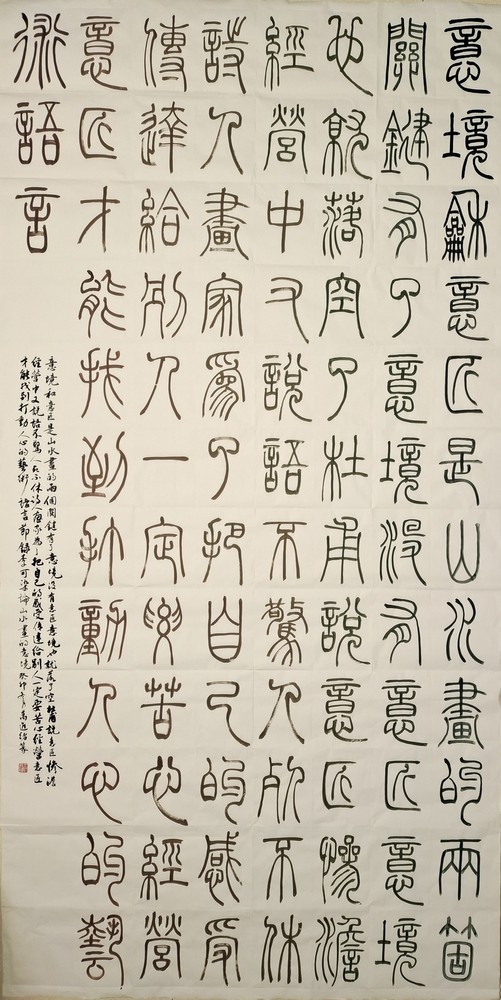 意境龢意匠是山水畫的兩箇
關鍵有了意境沒有意匠意境
也就落空了杜甫說意匠慘澹
經營中又說語不驚人死不休
詩人畫家爲了把自己的感受
傳達給別人一定要苦心經營
意匠才能找到打動人心的藝
術語言
意境和意匠是山水畫的兩個關鍵有了意境沒有意匠意境也就落了空杜甫說意匠慘澹
經營中又說語不驚人死不休詩人畫家為了把自己的感受傳達給別人一定要苦心經營意匠
才能找到打動人心的藝術語言節錄李可染論山水畫的意境癸卯